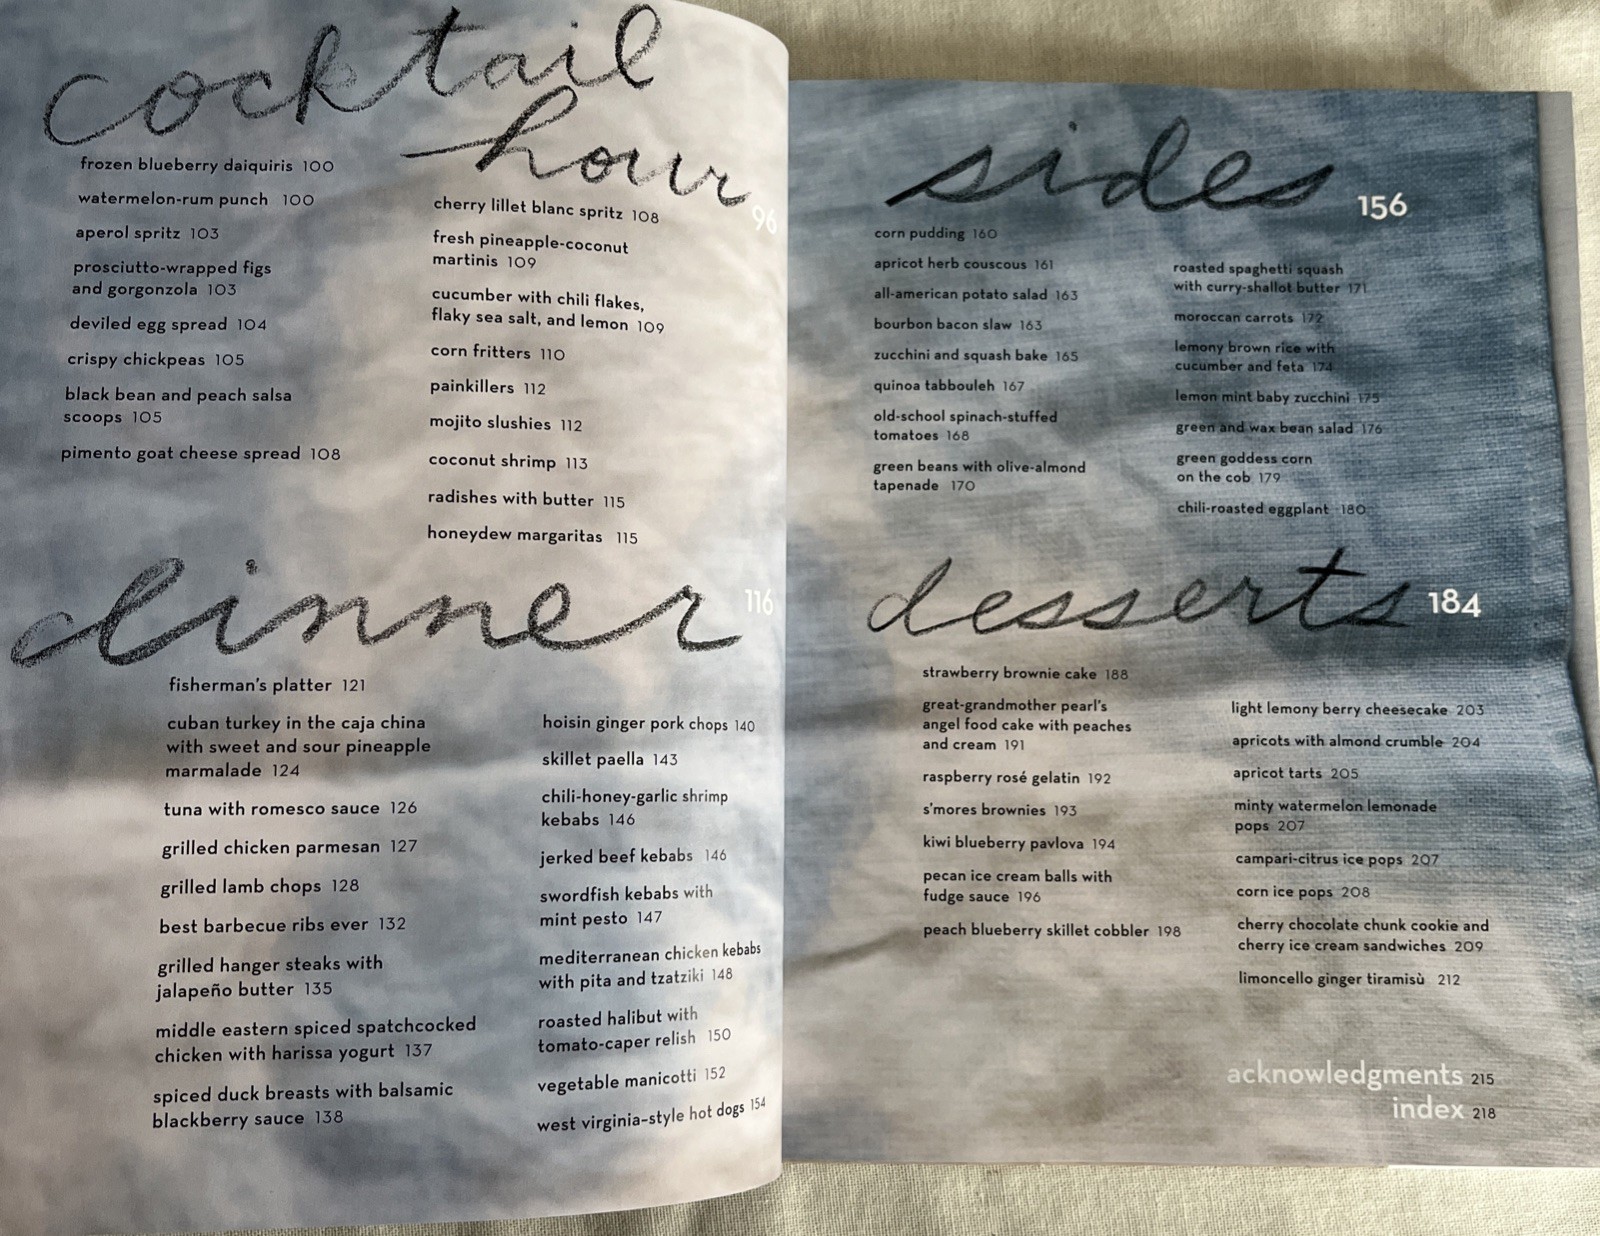 cocktail
hour 96
frozen blueberry daiquiris 100
watermelon-rum punch 100
aperol spritz 103
prosciutto-wrapped figs
and gorgonzola 103
deviled egg spread 104
crispy chickpeas 105
black bean and peach salsa
scoops 105
pimento goat cheese spread 108
cherry lillet blanc spritz 108
fresh pineapple-coconut
martinis 109
cucumber with chili flakes,
flaky sea salt, and lemon 109
corn fritters 110
painkillers 112
mojito slushies 112
coconut shrimp 113
radishes with butter 115
honeydew margaritas 115
dinner 116
fisherman's platter 121
cuban turkey in the caja china
with sweet and sour pineapple
marmalade 124
tuna with romesco sauce 126
grilled chicken parmesan 127
grilled lamb chops 128
best barbecue ribs ever 132
grilled hanger steaks with
jalapeño butter 135
middle eastern spiced spatchcocked
chicken with harissa yogurt 137
spiced duck breasts with balsamic
blackberry sauce 138
hoisin ginger pork chops 140
skillet paella 143
chili-honey-garlic shrimp
kebabs 146
jerked beef kebabs 146
swordfish kebabs with
mint pesto 147
mediterranean chicken kebabs
with pita and tzatziki 148
roasted halibut with
tomato-caper relish 150
vegetable manicotti 152
west virginia-style hot dogs 154
sides 156
corn pudding 160
apricot herb couscous 161
all-american potato salad 163
bourbon bacon slaw 163
zucchini and squash bake 165
quinoa tabbouleh 167
old-school spinach-stuffed
tomatoes 168
green beans with olive-almond
tapenade 170
roasted spaghetti squash
with curry-shallot butter 171
moroccan carrots 172
lemony brown rice with
cucumber and feta 174
lemon mint baby zucchini 175
green and wax bean salad 176
green goddess corn
on the cob 179
chili-roasted eggplant 180
desserts 184
strawberry brownie cake 188
great-grandmother pearl's
angel food cake with peaches
and cream 191
raspberry rosé gelatin 192
s'mores brownies 193
kiwi blueberry pavlova 194
pecan ice cream balls with
fudge sauce 196
peach blueberry skillet cobbler 198
light lemony berry cheesecake 203
apricots with almond crumble 204
apricot tarts 205
minty watermelon lemonade
pops 207
campari-citrus ice pops 207
corn ice pops 208
cherry chocolate chunk cookie and
cherry ice cream sandwiches 209
limoncello ginger tiramisù 212
acknowledgments 215
index 218